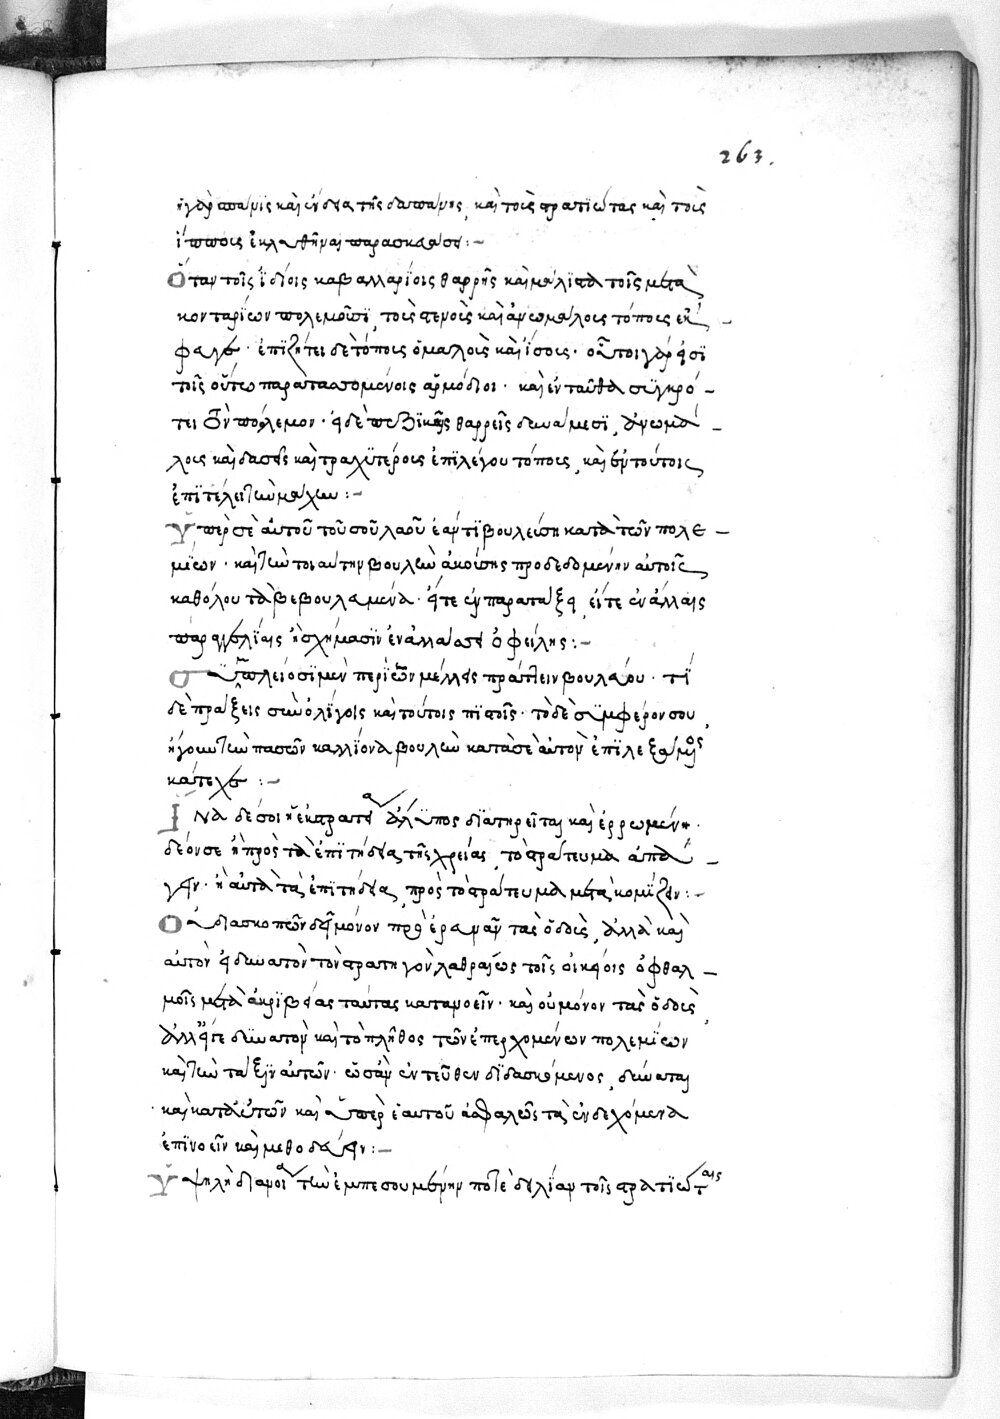 263.
ἡ γὰρ σπάνις καὶ ἔνδεια τῆς δαπάνης, καὶ τοὺς στρατιώτας καὶ τοὺς
ἵππους ἐκλυθῆναι παρασκευάσει:-
Ὅταν τοῖς ἰδίοις καβαλλαρίοις θαρρῆς καὶ μάλιστα τοῖς μετὰ
κονταρίων πολεμοῦσι, τοὺς στενοὺς καὶ ἀνωμάλους τόπους ἔκ-
φευγε· ἐπιζήτει δὲ τόπους ὁμαλοὺς καὶ ἴσους· οὗτοι γάρ εἰσι
τοῖς οὕτω παρατασσομένοις ἁρμόδιοι· καὶ ἐνταῦθα συγκρό-
τει τὸν πόλεμον· εἰ δὲ πεζικαῖς θαρρεῖς δυνάμεσι, ἀνωμά-
λους καὶ δασεῖς καὶ τραχυτέρους ἐπιλέγου τόπους, καὶ ἐν τούτοις
ἐπιτέλει τὴν μάχην:-
Ὑπὲρ σὲ αὐτοῦ τοῦ σοῦ λαοῦ ἐὰν τὶ βουλεύση κατὰ τῶν πολε-
μίων· καὶ τὴν τοιαύτην βουλὴν ἀκούσης προδεδομένην αὐτοῖς
καθόλου τὰ βεβουλευμένα· εἴτε ἐν παρατάξει, εἴτε ἐν ἄλλαις
παραγγελίαις ἢ σχήμασιν ἐναλλάσσειν ὀφείλης:-
Σὺ πλείοσι μὲν περὶ ὧν μέλλεις πράττειν βουλεύου· τὶ
δὲ πράξεις σὺν ὀλίγοις καὶ τούτοις πιστοῖς· τὸ δὲ συμφέρον σου,
ἤγουν τὴν πασῶν καλλίονα βουλὴν κατὰ σὲ αὐτὸν ἐπιλεξάμενος
κάτεχε:-
Ἵνα δέ σοι ἡ ἐκστρατεία ἄλυπος διατηρεῖται καὶ ἐρρωμένη·
δέον σε ἢ πρὸς τὰ ἐπιτήδεια τῆς χρείας, τὸ στράτευμα ἀπά-
γειν· ἢ αὐτὰ τὰ ἐπιτήδεια, πρὸς τὸ στράτευμα μετακομίζειν:-
Οὐ διασκοπεῶν δεῖ μόνον προερευνᾶν τὰς ὁδοὺς, ἀλλὰ καὶ
αὐτὸν εἰ δυνατὸν τὸν στρατηγὸν, λαθραίως τοῖς οἰκείοις ὀφθαλ-
μοῖς μετὰ ἀκριβείας ταύτας κατανοεῖν· καὶ οὐ μόνον τὰς ὁδοὺς,
ἀλλ' εἴτε δυνατὸν καὶ τὸ πλῆθος τῶν ἐπερχομένων πολεμίων
καὶ τὴν τάξιν αὐτῶν· ὡς ἂν ἐντεῦθεν διδασκόμενος, δύναται
καὶ κατ' αὐτῶν καὶ ὑπὲρ ἑαυτοῦ ἀσφαλῶς τὰ ἐνδεχόμενα
ἐπινοεῖν καὶ μεθοδεύειν:-
Ὑψηλὴ διάνοια τὴν ἐμπεσουμένην ποτὲ δειλίαν τοῖς στρατιώταις